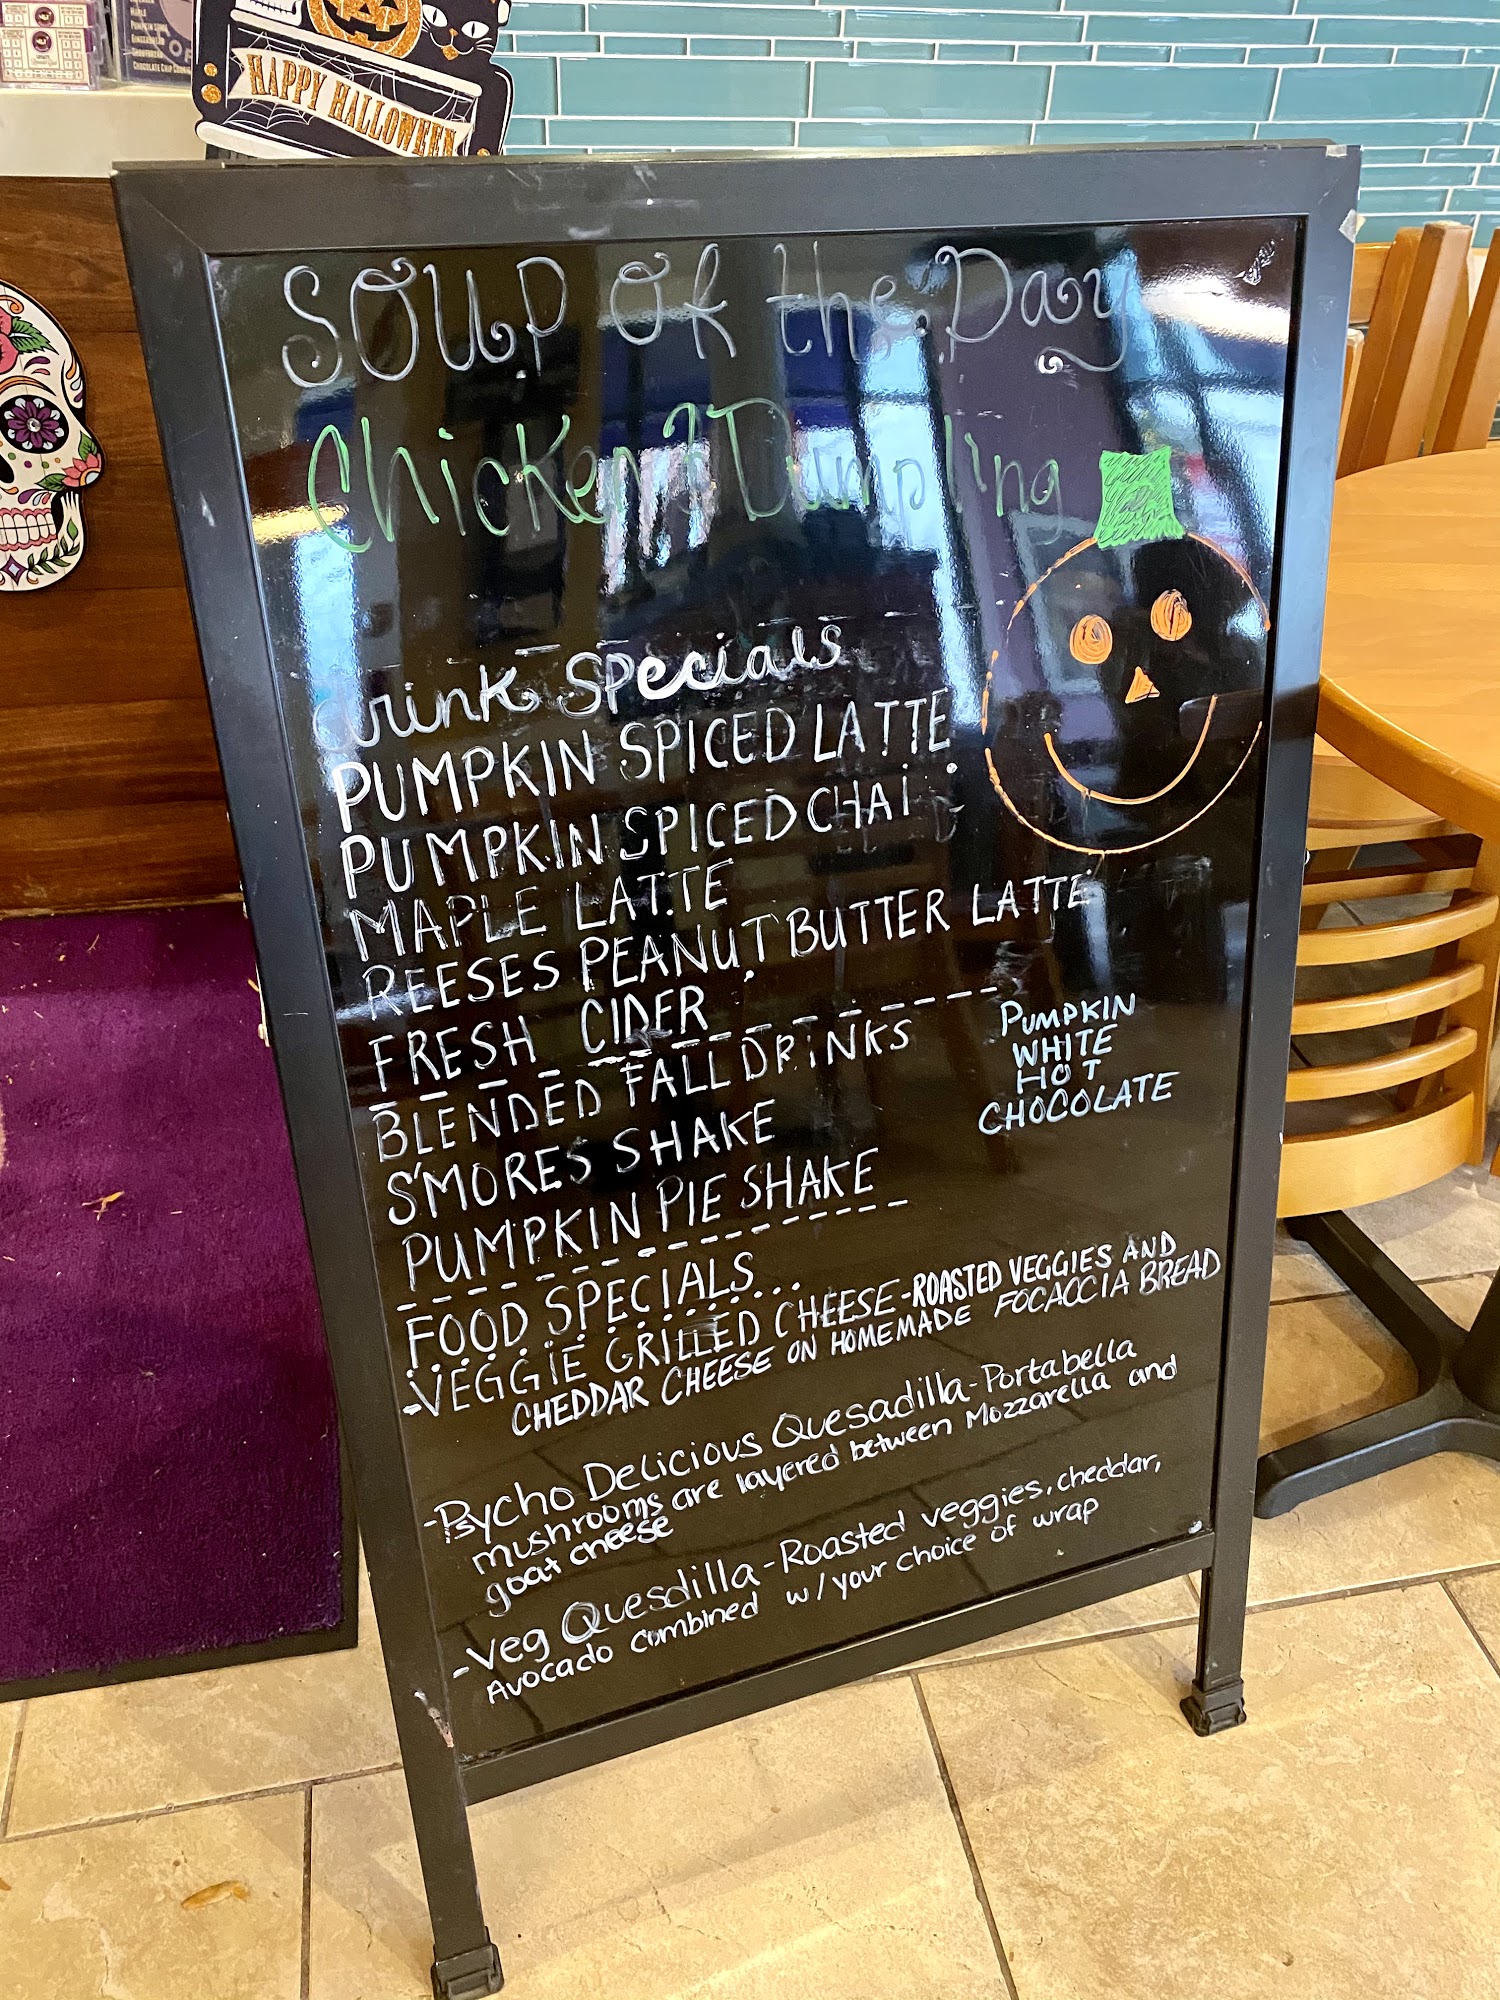 HAPPY HALLOWEEN
CHOCOLATE CHIP COOKIE
SOUP Of the Day
Chicken & Dumpling
drink specials
PUMPKIN SPICED LATTE
PUMPKIN SPICED CHAI
MAPLE LATTE
REESES PEANUT BUTTER LATTE
FRESH CIDER
PUMPKIN
WHITE
HOT
CHOCOLATE
BLENDED FALL DRINKS
S'MORES SHAKE
PUMPKIN PIE SHAKE
FOOD SPECIALS...
-VEGGIE GRILLED CHEESE-ROASTED VEGGIES AND
CHEDDAR CHEESE ON HOMEMADE FOCACCIA BREAD
-Psycho Delicious Quesadilla-Portabella
mushrooms are layered between Mozzarella and
goat cheese
-Veg Quesdilla-Roasted veggies, cheddar,
Avocado combined w/ your choice of wrap